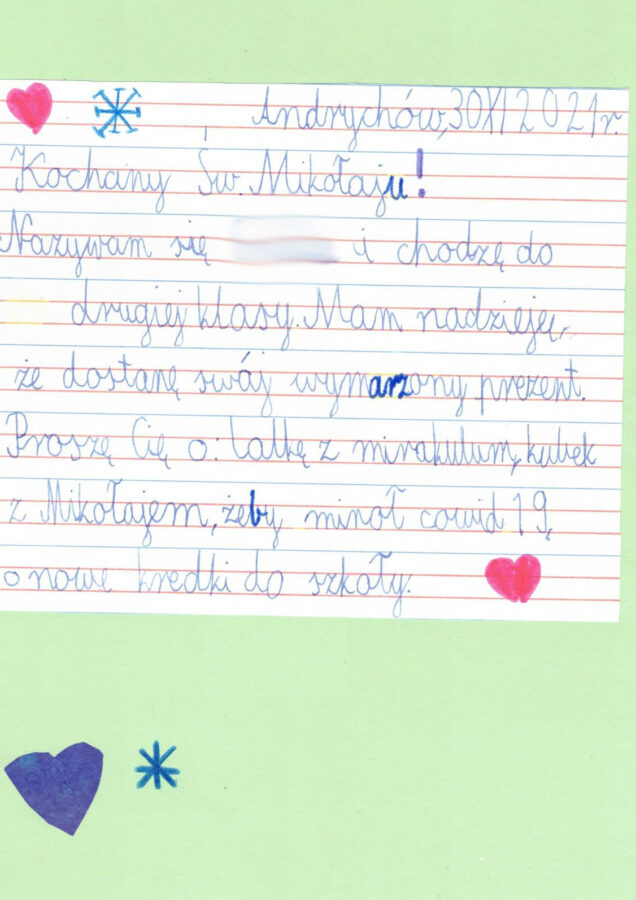 Andrychów,30XI2021r.
Kochany Św. Mikołaju!
Nazywam się i chodzę do
drugiej klasy. Mam nadzieję,
że dostanę swój wymarzony prezent.
Proszę Cię o: lalkę z mirakulum, kubek
z Mikołajem, żeby minoł cowid 19,
o nowe kredki do szkoły.